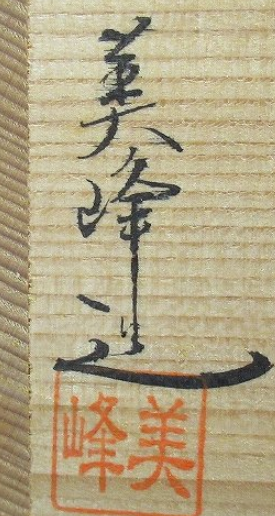 美峰造
美峰